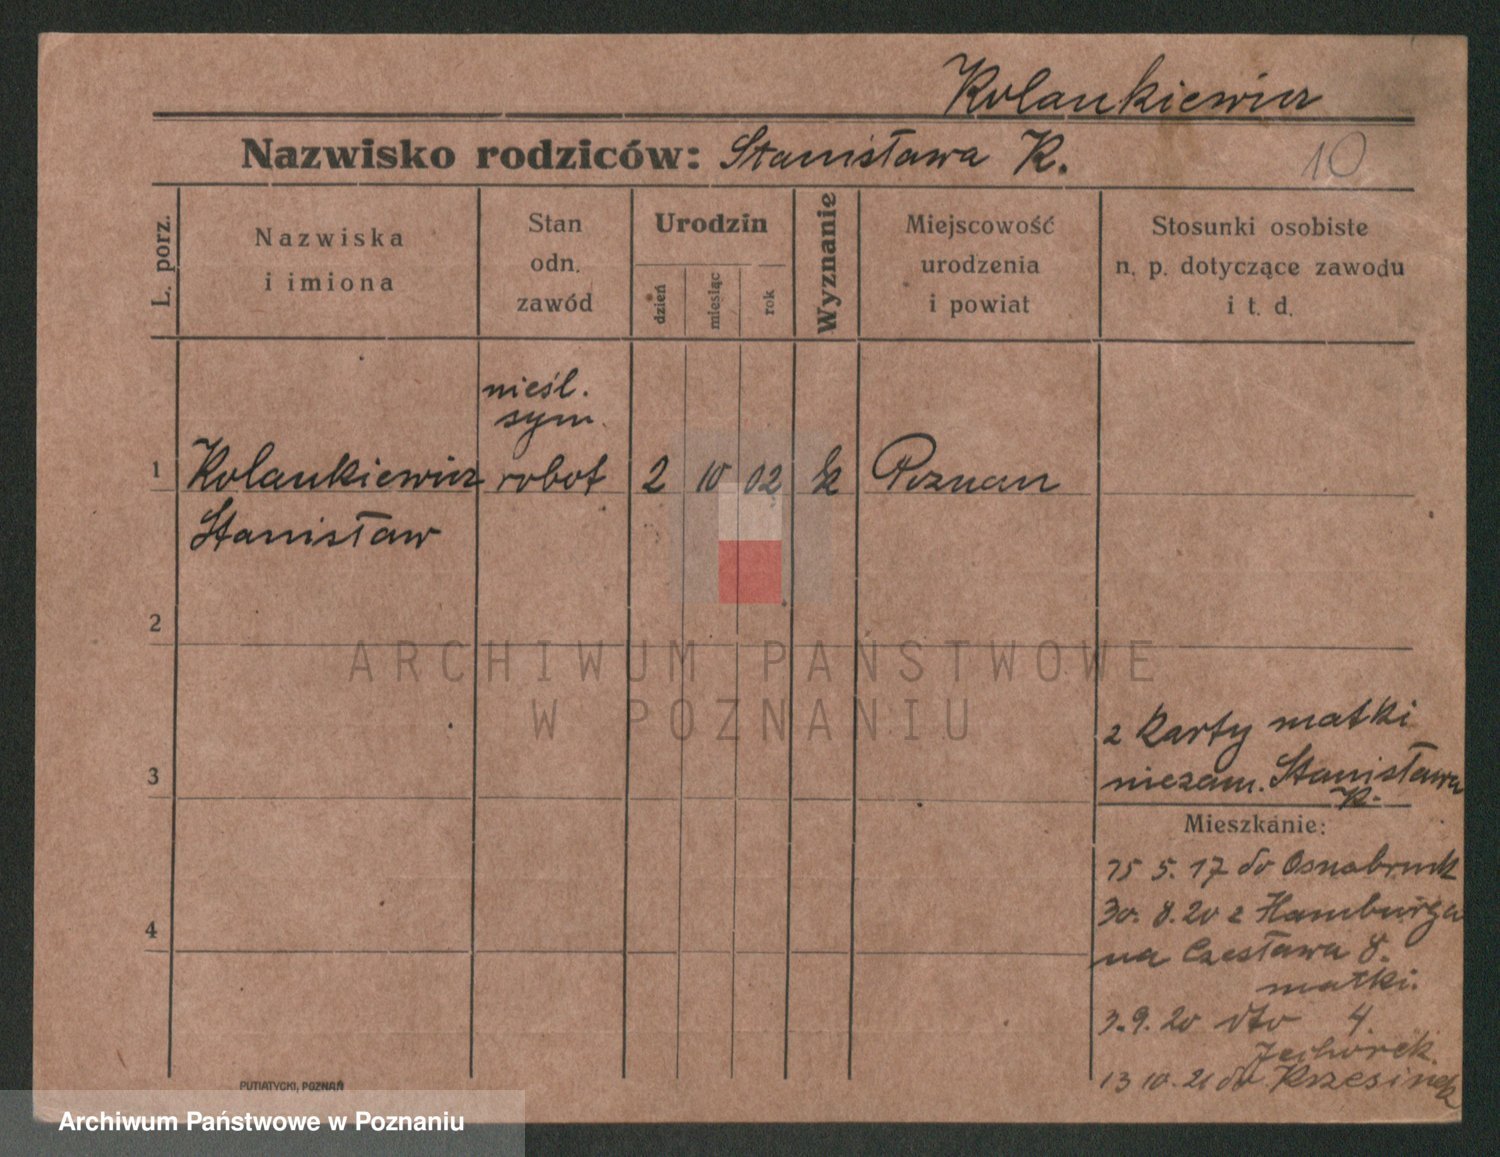 Kolankiewicz
Nazwisko rodziców: Stanisława K.
10
L. porz.
Nazwiska
i imiona
Stan
odn.
zawód
Urodzin
dzień
miesiąc
rok
Wyznanie
Miejscowość
urodzenia
i powiat
Stosunki osobiste
n. p. dotyczące zawodu
i t. d.
nieśl.
sym.
1 Kolankiewicz robot 2 10 02 k Poznan
Stanisław
2
ARCHIWUM PAŃSTWOWE
W POZNANIU
z karty matki
niezam. Stanisława
K.
3
Mieszkanie:
15 5. 17 do Osnabruck
30. 8. 20 z Hamburga
4
na Czesława 8.
matki.
3. 9. 20 dto 4.
13 10. 21 do Krzesinek
PUTIATYCKI, POZNAŃ
Archiwum Państwowe w Poznaniu